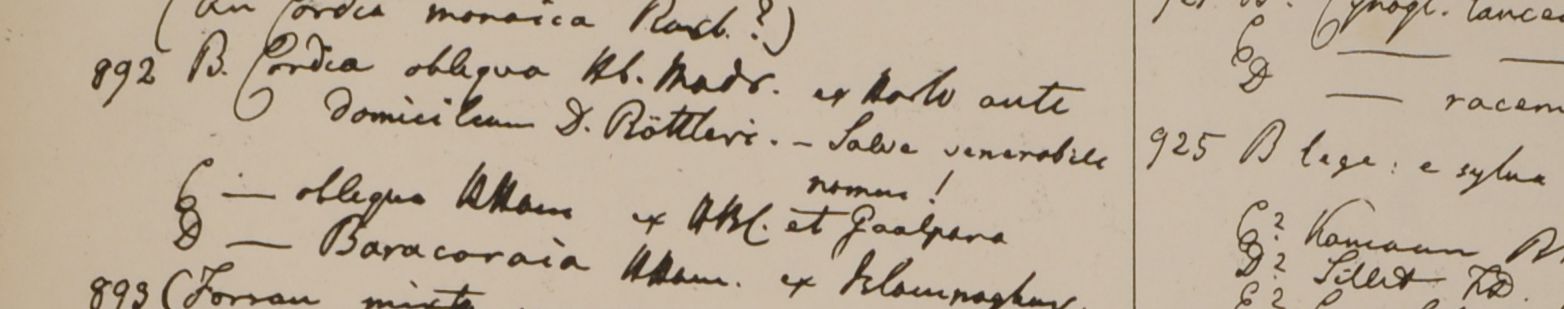 (An Cordia monoica Roxb.?)
892 B. Cordia obliqua Hb. Madr. ex horto ante
domicilium D. Röttleri. – Salve venerabile
nomen!
C — obliqua HHam ex HBC. et Goalpara
D — Baracoraia HHam. ex
893 (Forsan mixta
B. Cynogl. lancea
C — —
D — racem
925 B lege: e sylva
C? Kamaun
D? Sillet FD.
E?